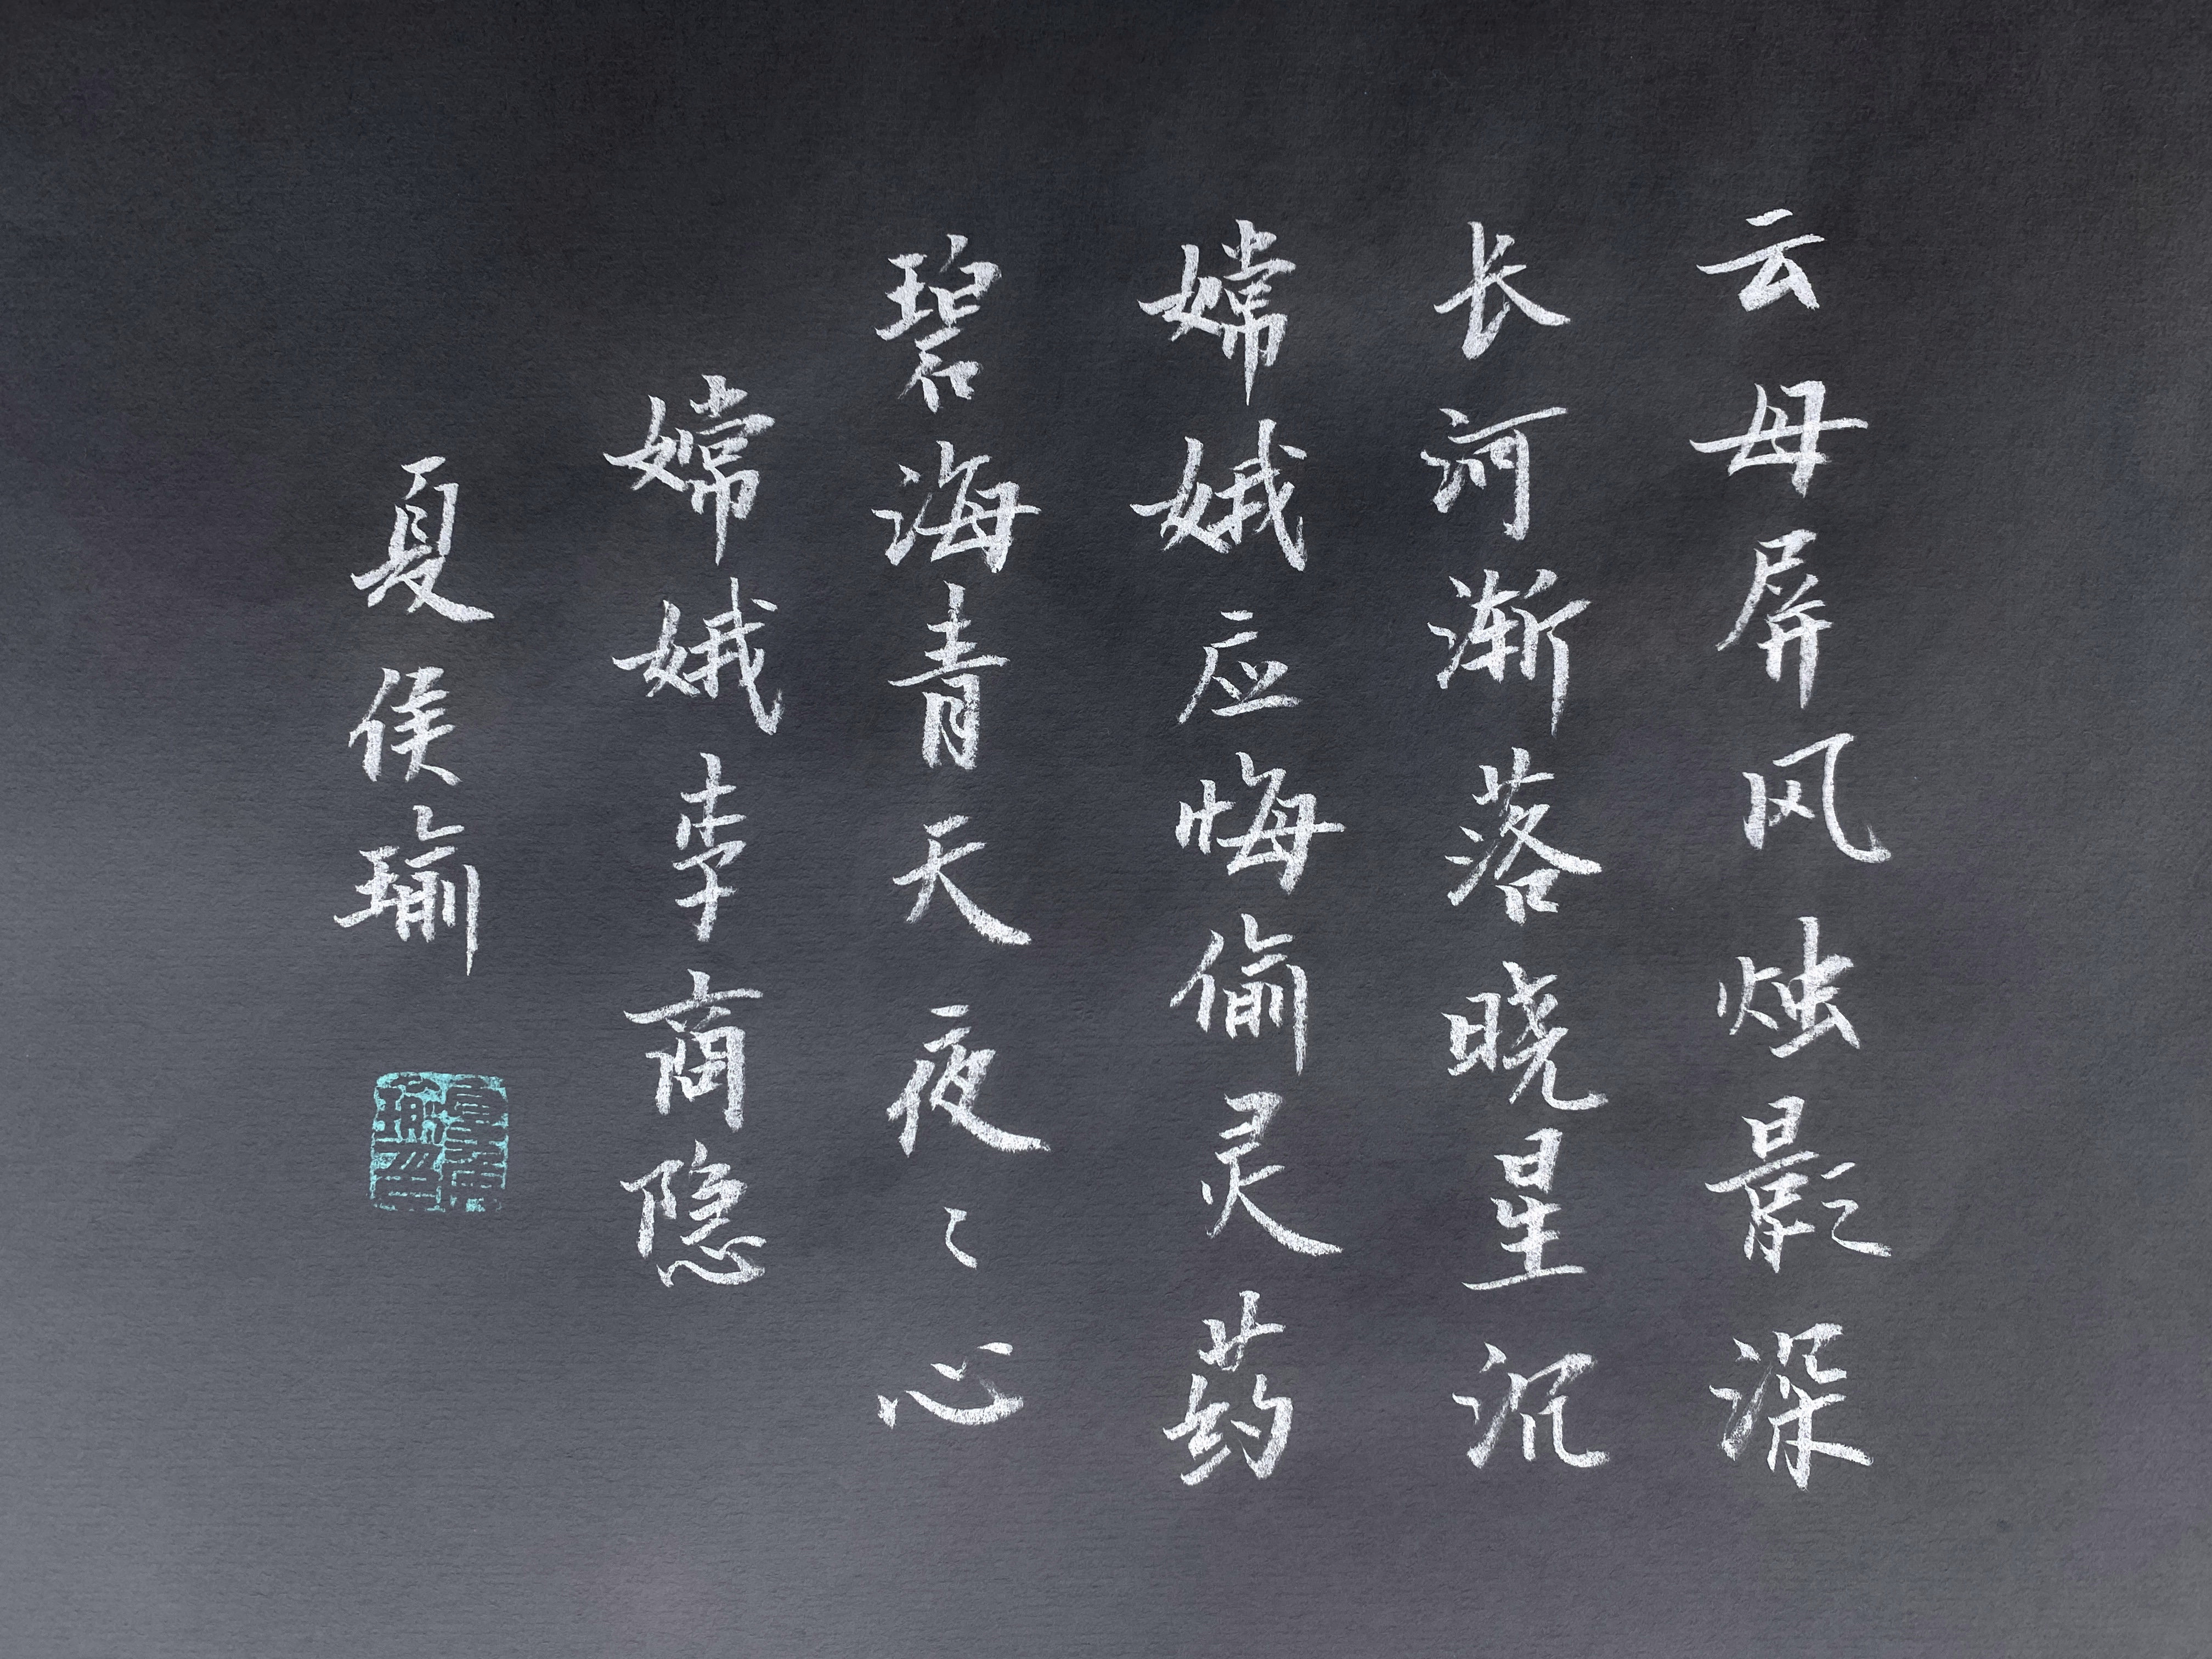 云母屏风烛影深
长河渐落晓星沉
嫦娥应悔偷灵药
碧海青天夜〻心
嫦娥李商隐
夏侯瑜